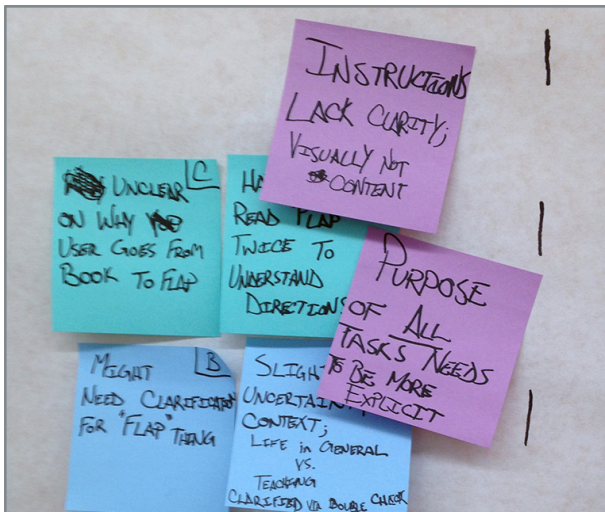 INSTRUCTIONS
LACK CLARITY;
VISUALLY NOT
CONTENT
C
UNCLEAR
ON WHY
USER GOES FROM
BOOK TO FLAP
HA
READ FLAP
TWICE TO
UNDERSTAND
DIRECTIONS
PURPOSE
OF ALL
TASKS NEEDS
TO BE MORE
EXPLICIT
B
MIGHT
NEED CLARIFICATION
FOR "FLAP" THING
SLIGH
UNCERTAIN
CONTEXT;
LIFE in GENERAL
VS.
TEACHING
CLARIFIED VIA DOUBLE CHECK